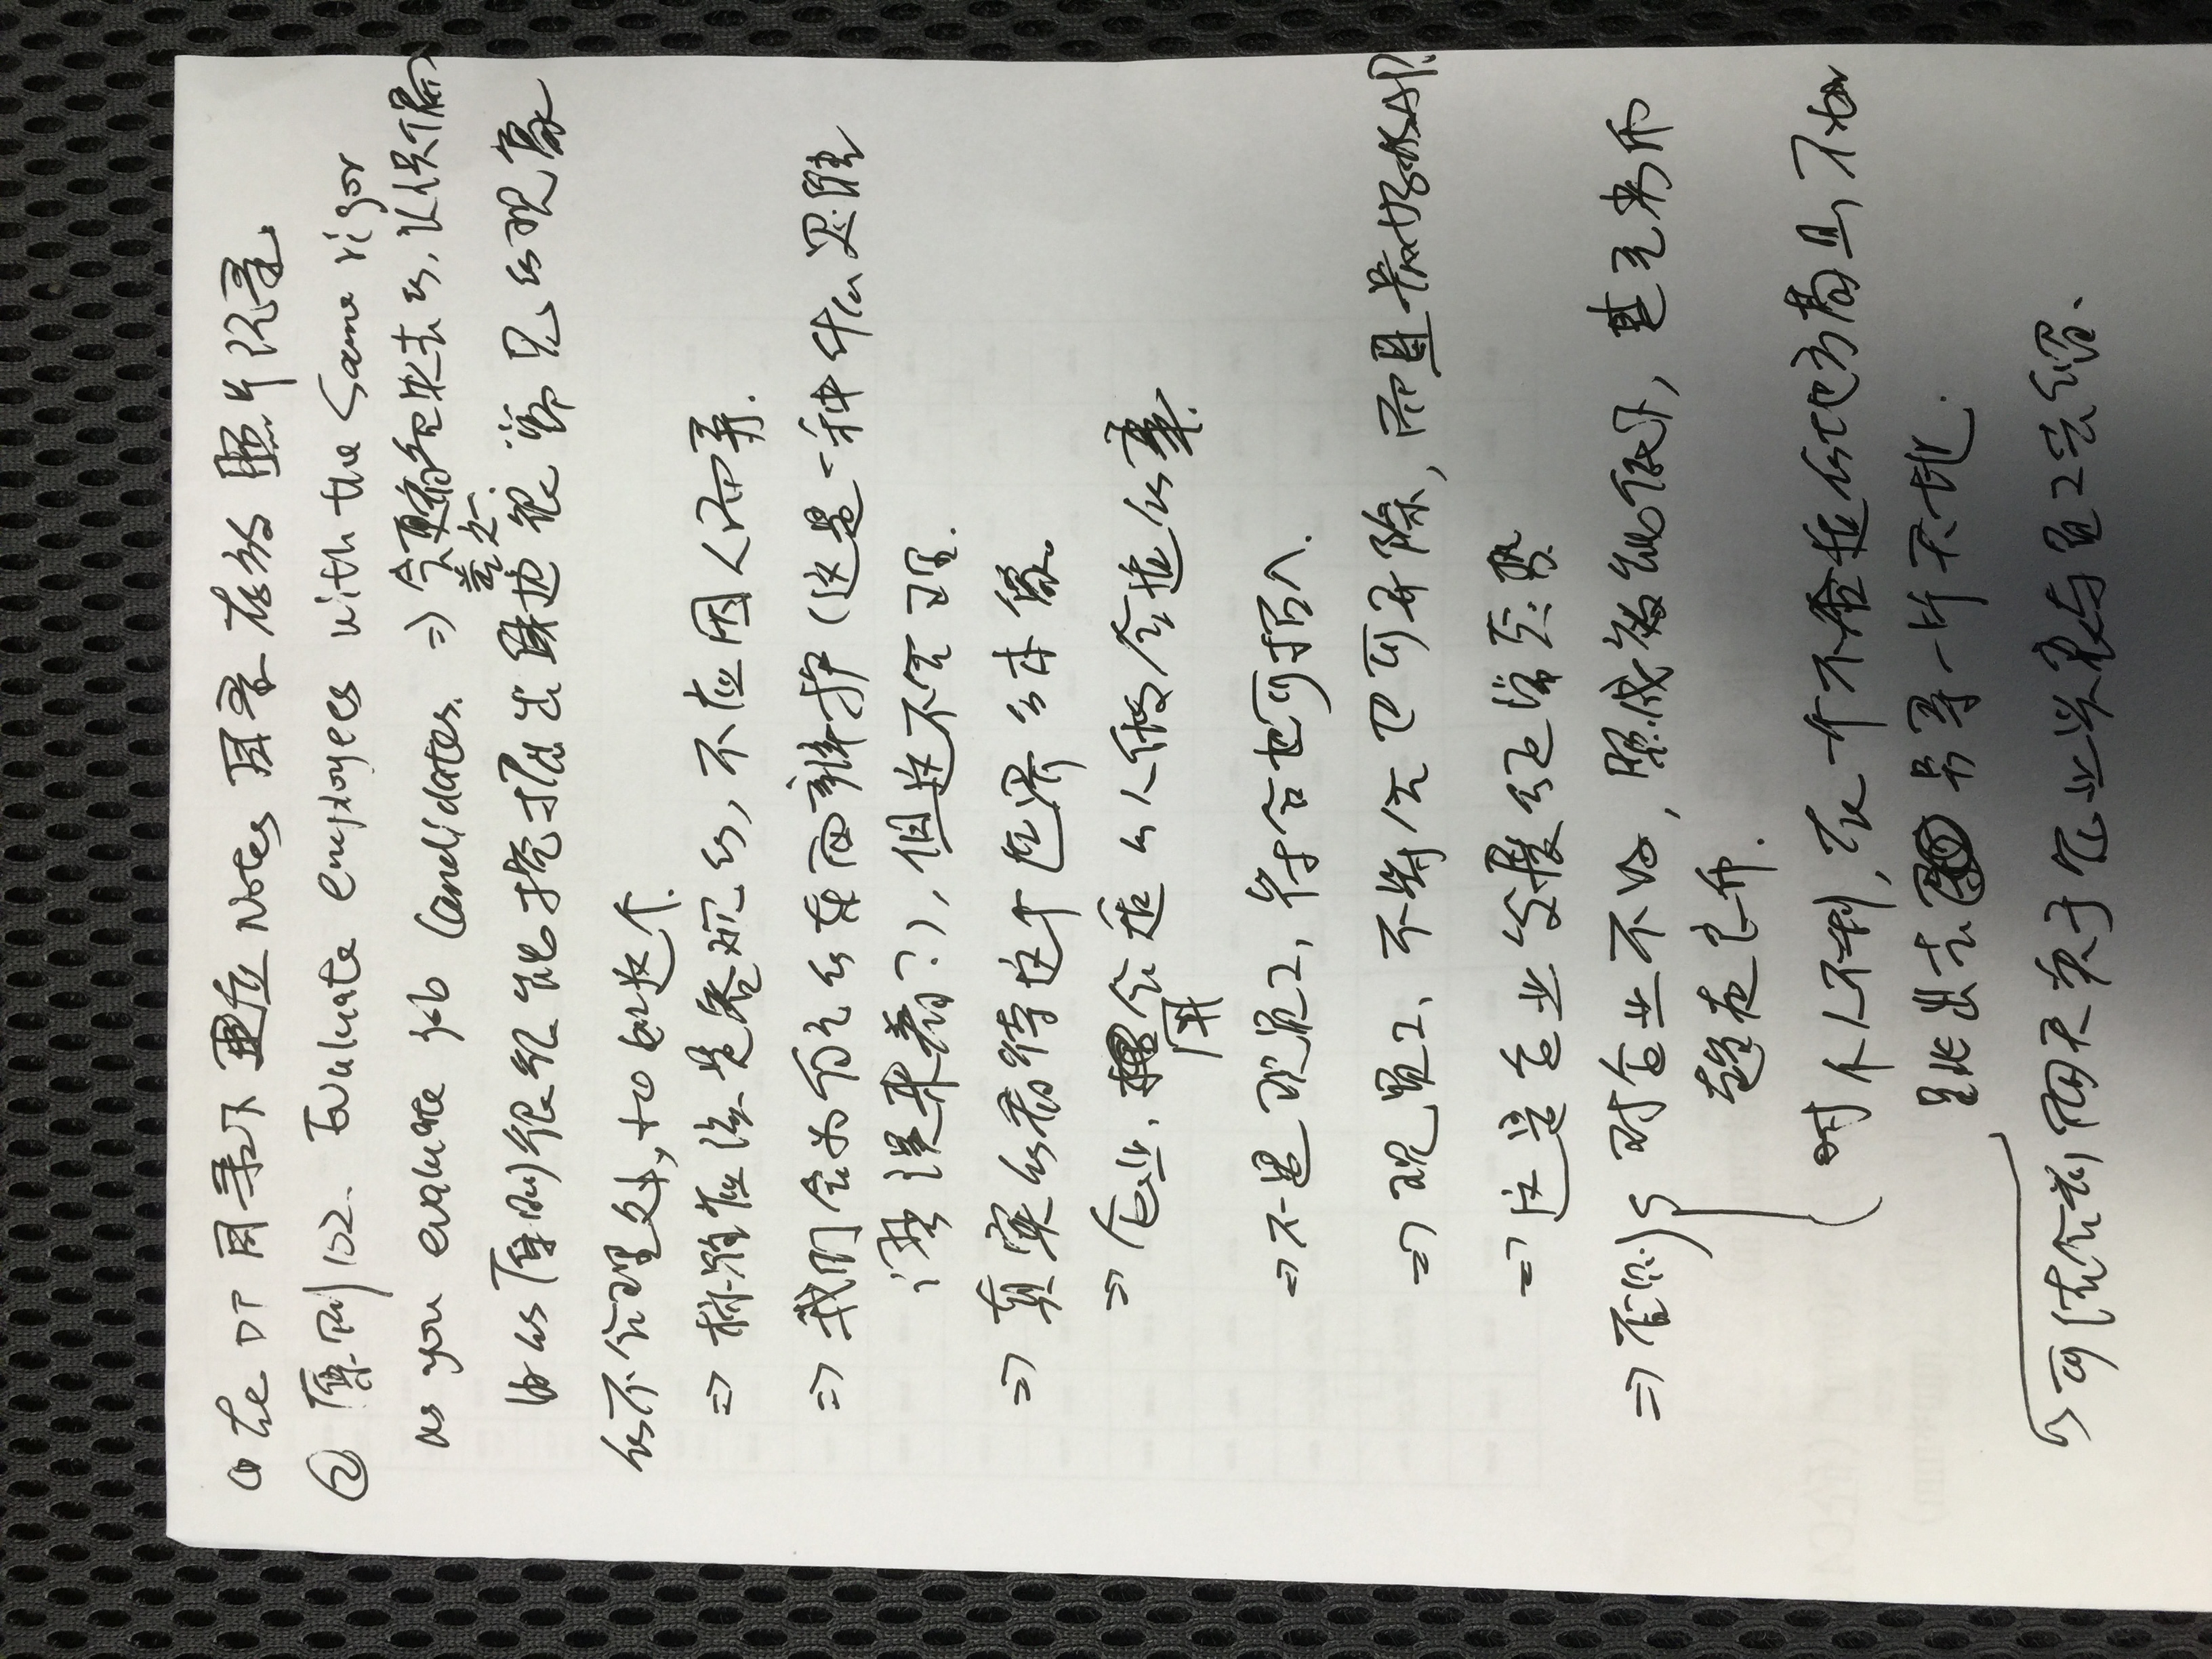 ① 在DP目录下建立Notes目录存放照片记录.
② 原则102. Evaluate employees with the same rigor
as you evaluate job candidates. ⇒ 今更看起来去的,
的原则很能挖掘出身边很常见的现象
的不合理处, 比如这个.
⇒ 标准应该是客观的, 不应因人而异.
⇒ 我们会为自己的东西辩护 (这是一种什么思维
错误来着?), 但这不合理.
⇒ 真实的看待这个世界的本像。
⇒ 企业, 用合适的人做合适的事.
⇒ 不是现员工, 符合也可招入.
⇒ 现员工, 不符合也可开除, 而且最好ASAP.
⇒ 这是企业发展的正常态势
⇒ 否则 { 对企业不好, 照成效能低下, 甚至劣币
趋走良币.
对个人不利, 在一个不合适的地方 不如
跳出去 另寻一片天地.
可结合前两天关于企业兴衰与员工去留.